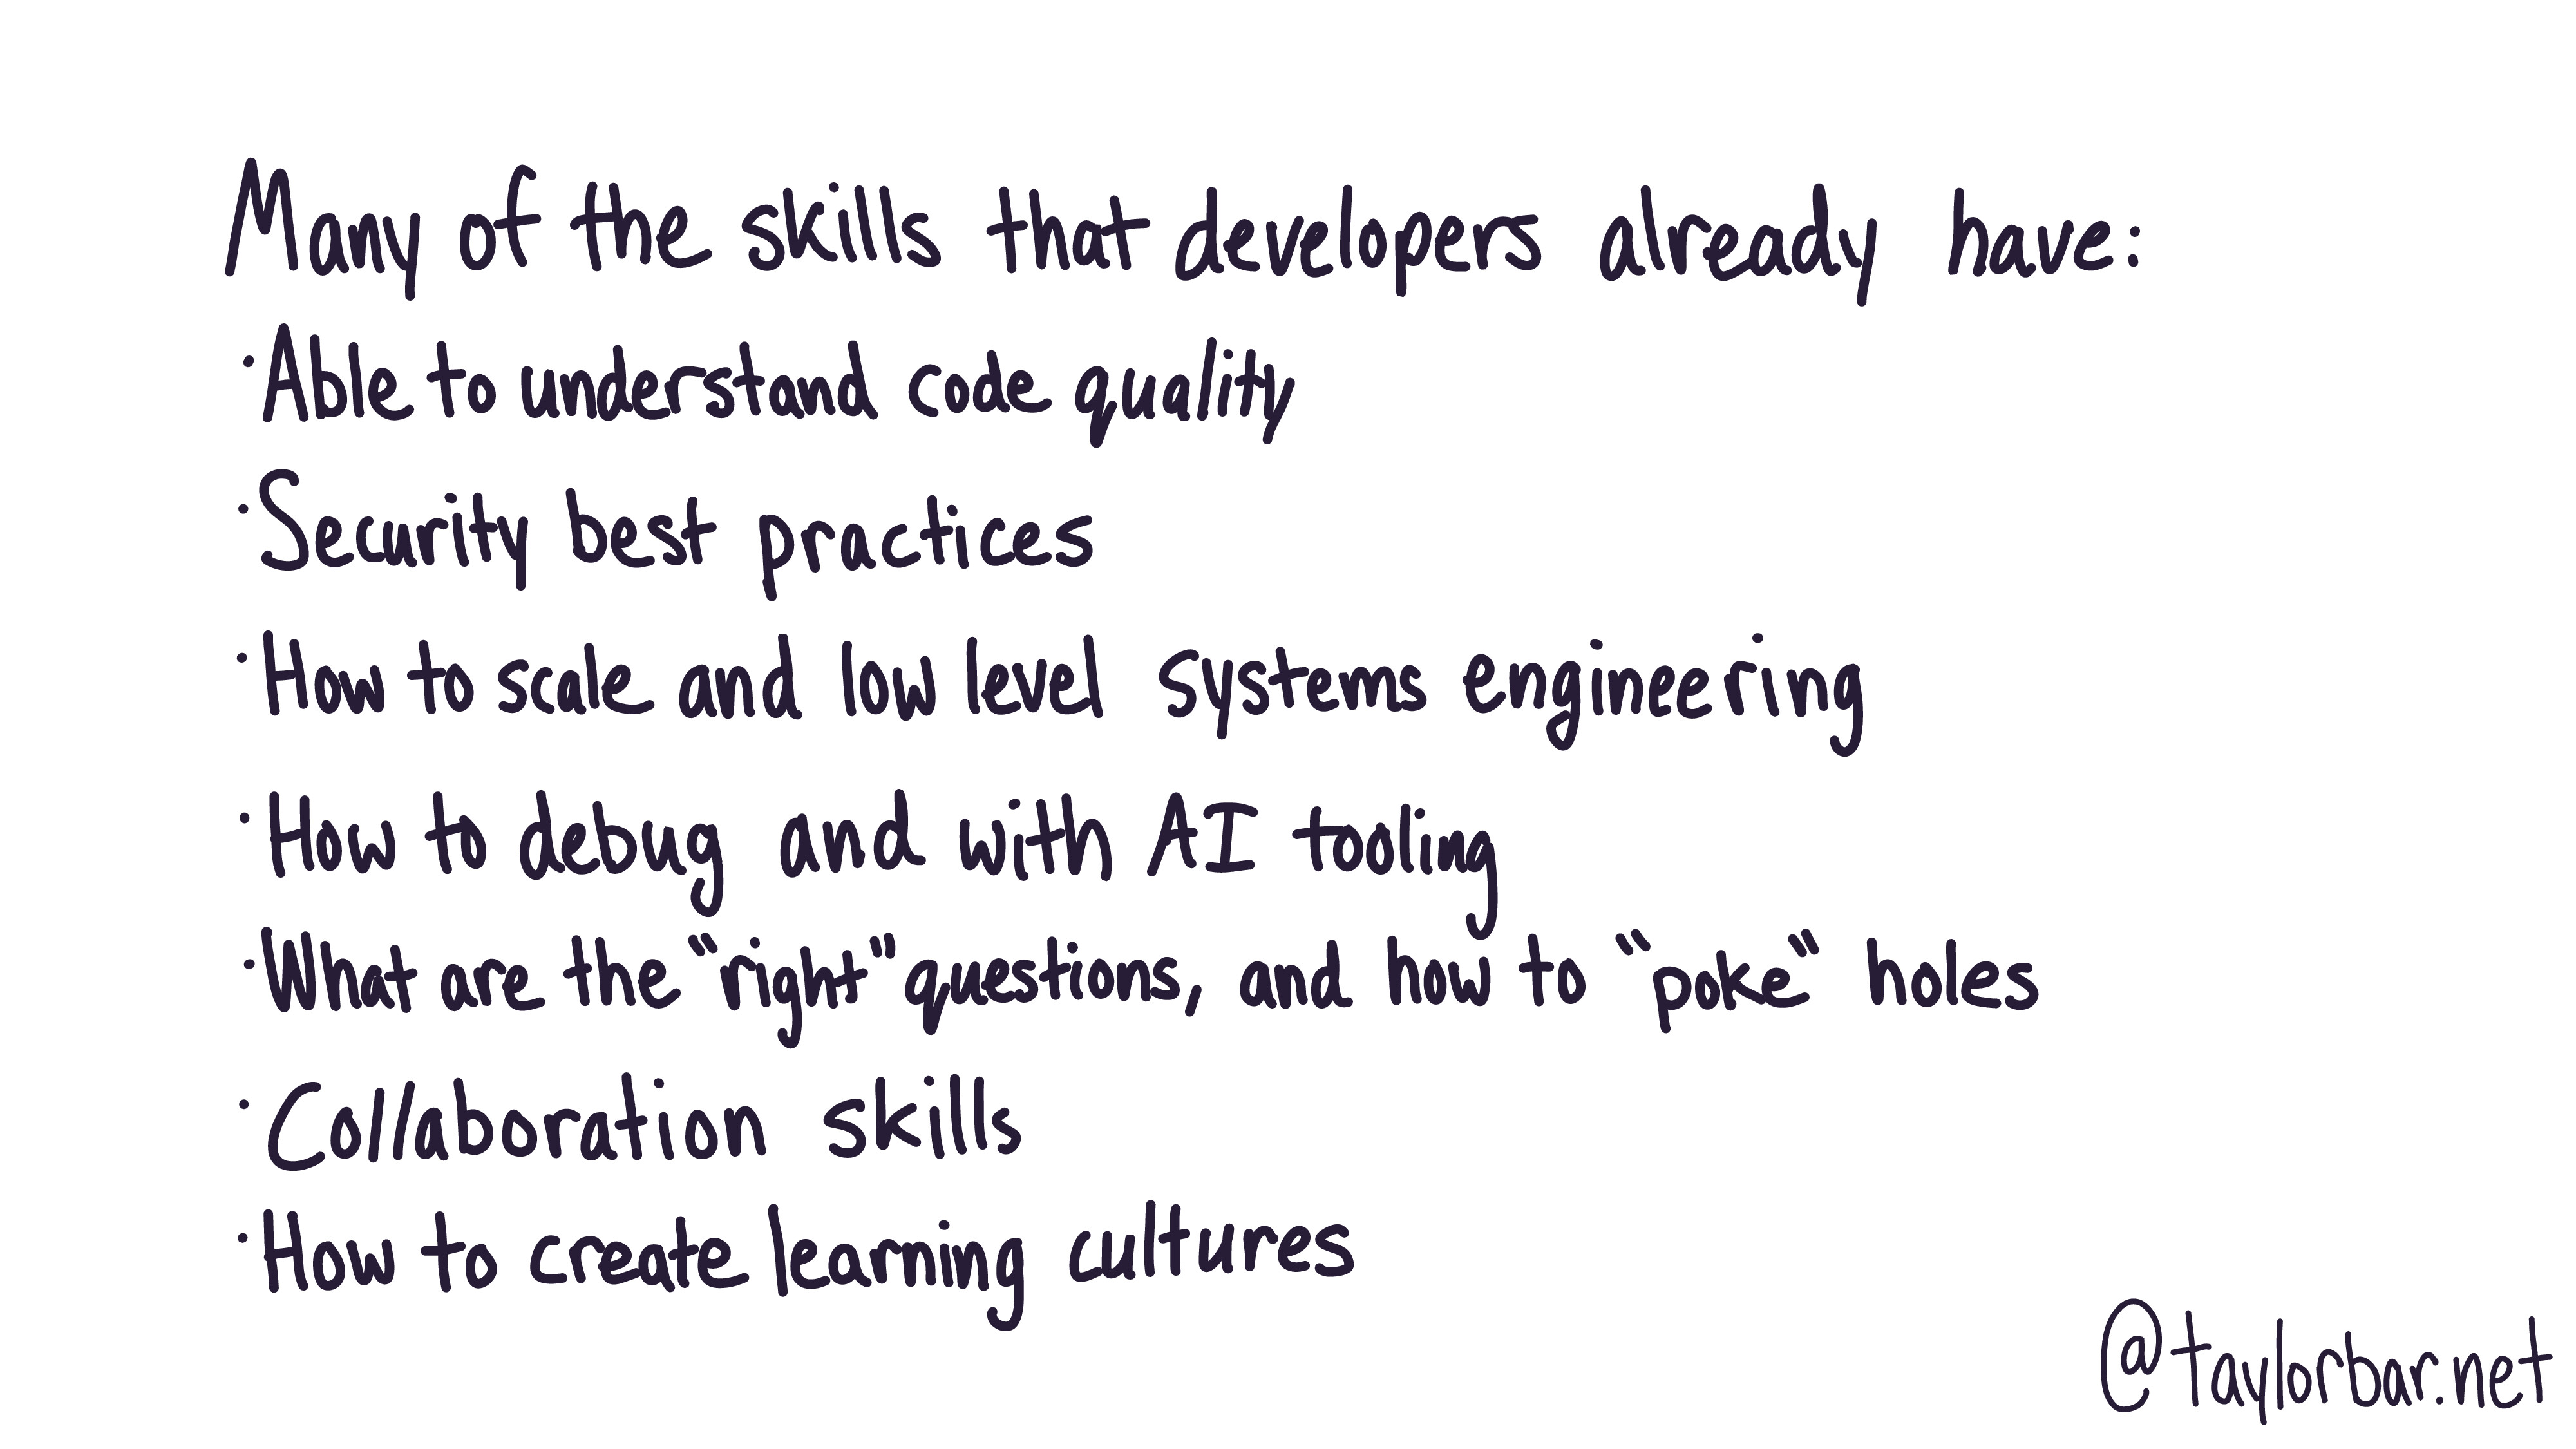 Many of the skills that developers already have:
·Able to understand code quality
·Security best practices
·How to scale and low level systems engineering
·How to debug and with AI tooling
·What are the "right" questions, and how to "poke" holes
·Collaboration skills
·How to create learning cultures
@taylorbar.net